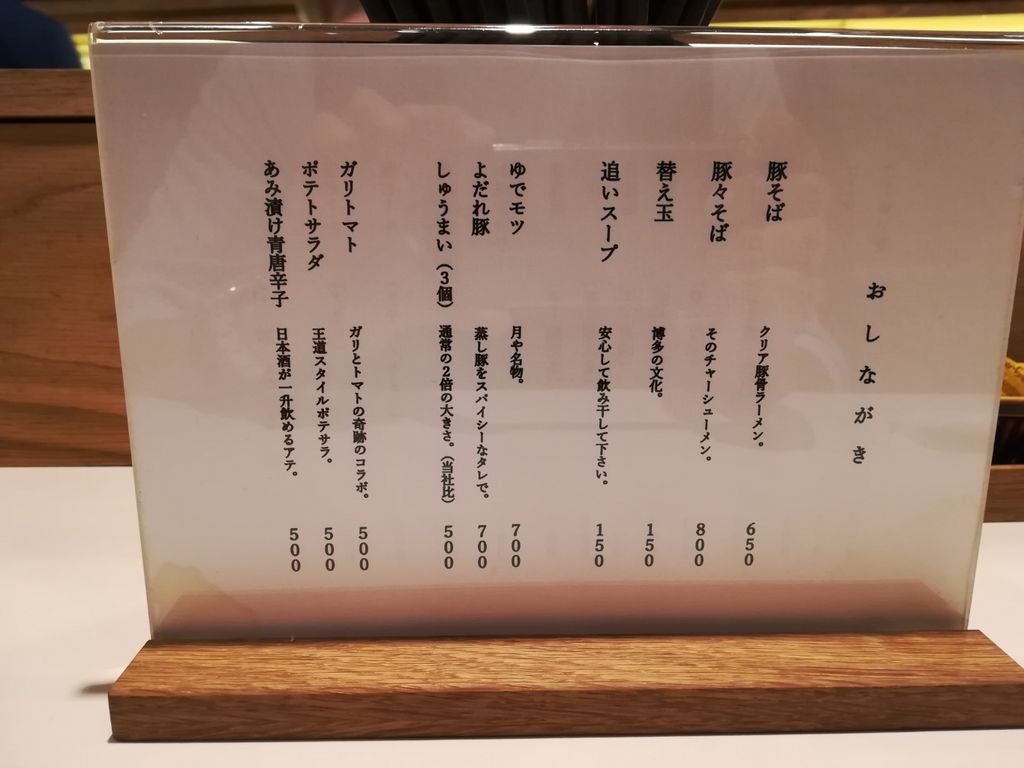 おしながき
豚そば　クリア豚骨ラーメン。　650
豚々そば　そのチャーシューメン。　800
替え玉　博多の文化。　150
追いスープ　安心して飲み干して下さい。　150
ゆでモツ　月や名物。　700
よだれ豚　蒸し豚をスパイシーなタレで。　700
しゅうまい（3個）　通常の2倍の大きさ。（当社比）　500
ガリトマト　ガリとトマトの奇跡のコラボ。　500
ポテトサラダ　王道スタイルポテサラ。　500
あみ漬け青唐辛子　日本酒が一升飲めるアテ。　500